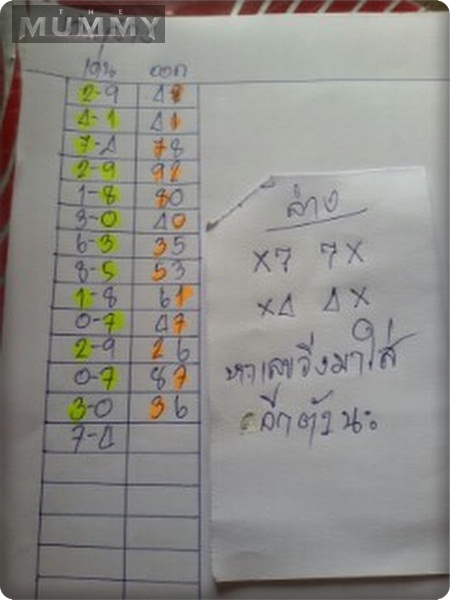 THE
MUMMY
เด่น ออก
2-9 42
4-1 41
7-4 78
2-9 92
1-8 80
3-0 40
6-3 35
8-5 53
1-8 61
0-7 47
2-9 26
0-7 87
3-0 36
7-4
ล่าง
X7 7X
X4 4X
หาเลขวิ่งมาใส่
อีกตัวนะ